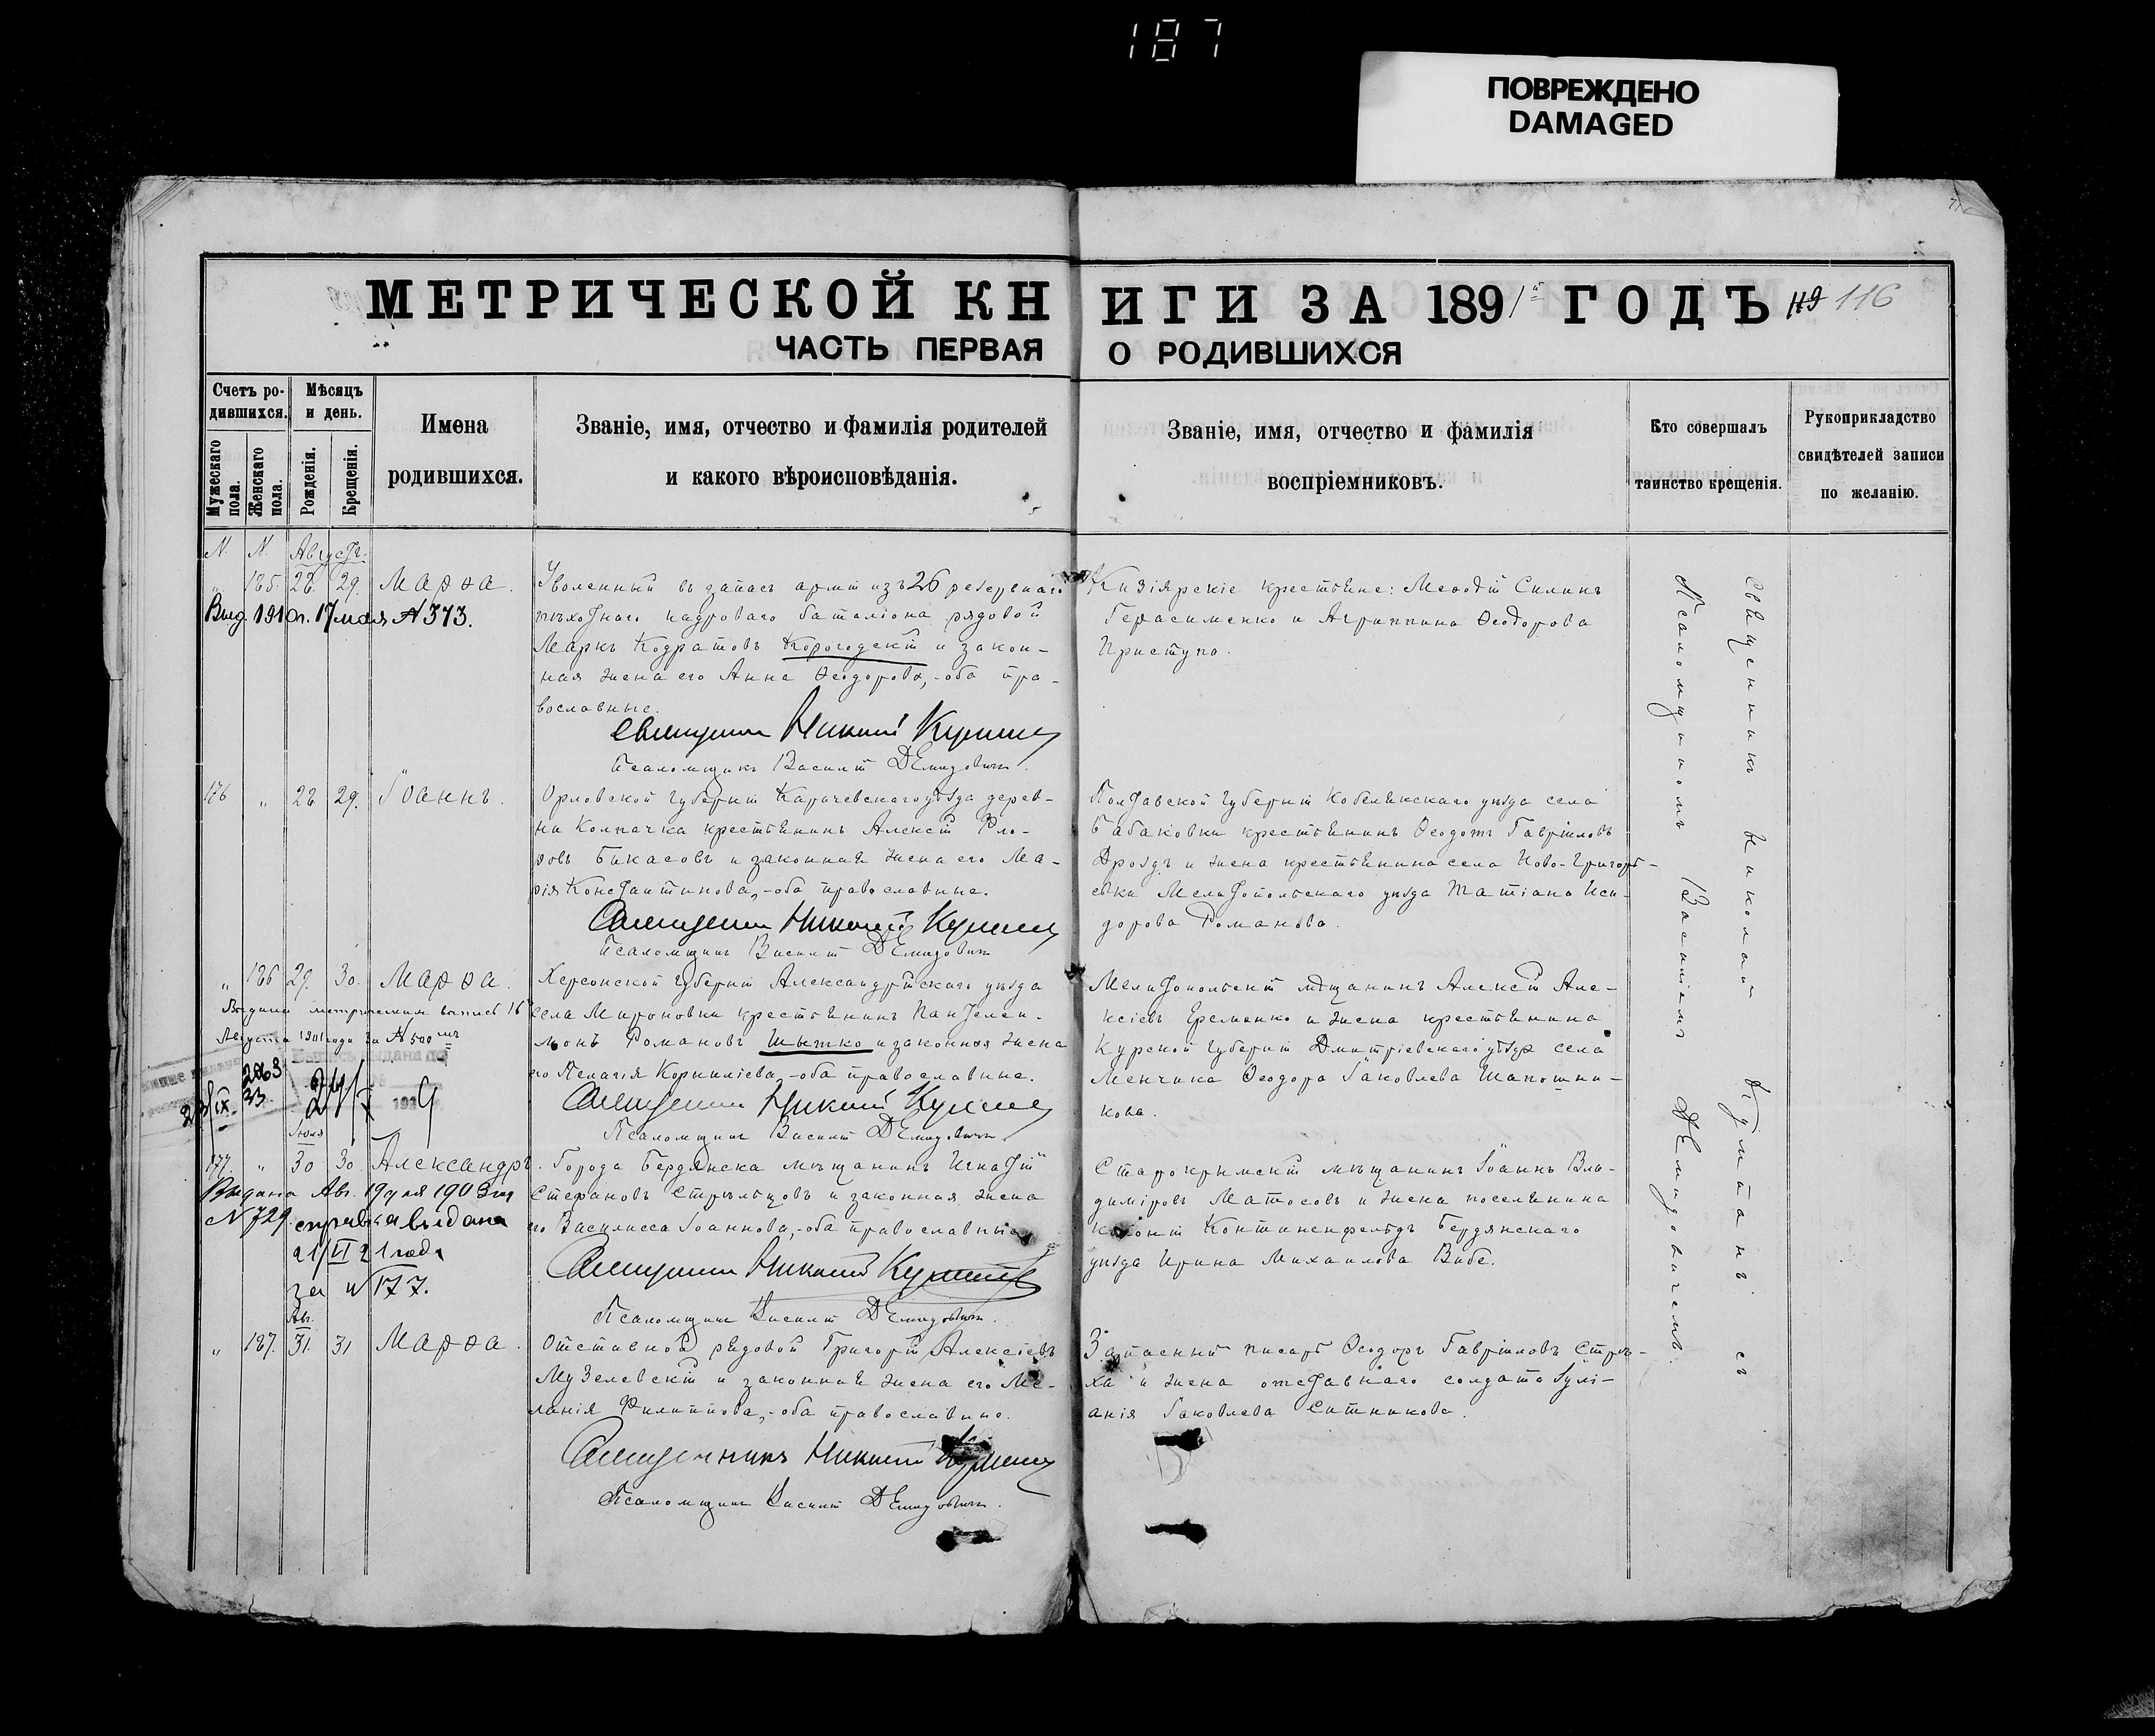 187
ПОВРЕЖДЕНО
DAMAGED
МЕТРИЧЕСКОЙ КНИГИ ЗА 1891 ГОДЪ 116
ЧАСТЬ ПЕРВАЯ О РОДИВШИХСЯ
Счетъ родившихся.
Мужескаго пола.
Женскаго пола.
Мѣсяцъ и день.
Рожденія.
Крещенія.
Имена родившихся.
Званіе, имя, отчество и фамилія родителей
и какого вѣроисповѣданія.
Званіе, имя, отчество и фамилія
воспріемниковъ.
Кто совершалъ
таинство крещенія.
Рукоприкладство
свидѣтелей записи
по желанію.
N. N. Августъ.
" 185. 28. 29. Марѳа.
Выд. 1910г. 17 мая № 373.
Уволенный въ запасъ арміи изъ 26 резервнаго
пѣхотнаго кадроваго баталіона рядовой
Маркъ Кодратовъ Корогодскій и закон-
ная жена его Анна Ѳеодорова, - оба пра-
вославные.
Священникъ Николай
Псаломщикъ Василій Демидовичъ.
Кизіярскіе крестьяне: Меѳодій Силинъ
Герасименко и Агриппина Ѳеодорова
Приступа.
176 " 28. 29. Іоаннъ.
Орловской губерніи Карачевскаго уѣзда дерев-
ни Колпачка крестьянинъ Алексѣй Фло-
ровъ Бикасовъ и законная жена его Ма-
рія Константинова, - оба православные.
Священникъ Николай
Псаломщикъ Василій Демидовичъ
Полтавской губерніи Кобелякскаго уѣзда села
Бабаковки крестьянинъ Ѳеодотъ Гавріиловъ
Дроздъ и жена крестьянина села Ново-Григорь-
евки Мелитопольскаго уѣзда Татіана Иси-
дорова Романова.
" 186 29. 30. Марѳа.
Выдана метрическая выпись 16
Августа 1901 года за № 500
Херсонской губерніи Александрійскаго уѣзда
села Мироновки крестьянинъ Пантелеи-
монъ Романовъ Шытко и законная жена
его Пелагія Корниліева, - оба православные.
Священникъ Николай
Псаломщикъ Василій Демидовичъ.
Мелитопольскій мѣщанинъ Алексѣй Але-
ксіевъ Еременко и жена крестьянина
Курской губерніи Дмитріевскаго уѣзда села
Менчика Ѳеодора Іаковлева Шапошни-
кова.
Іюня
177. " 30 30. Александръ.
Выдана Авг. 19 дня 1903 г.
№ 729. справка выдана
21/VI 21 года
за № 177.
Города Бердянска мѣщанинъ Игнатій
Стефановъ Стрѣльцовъ и законная жена
его Василисса Іоаннова, - оба православные.
Священникъ Николай
Псаломщикъ Василій Демидовичъ.
Старокрымскій мѣщанинъ Іоаннъ Вла-
диміровъ Матосовъ и жена поселянина
колоніи Континенфельдъ Бердянскаго
уѣзда Ирина Михаилова Вибе.
Авг.
" 187. 31. 31 Марѳа.
Отставной рядовой Григорій Алексіевъ
Музелевскій и законная жена его Ме-
ланія Филиппова, - оба православные.
Священникъ Николай
Псаломщикъ Василій Демидовичъ.
Запасный писарь Ѳеодоръ Гавріиловъ Стрѣ-
ха и жена отставнаго солдата Іулі-
анія Іаковлева Ситникова.
Священникъ Николай съ
Псаломщикомъ Василіемъ Демидовичемъ.